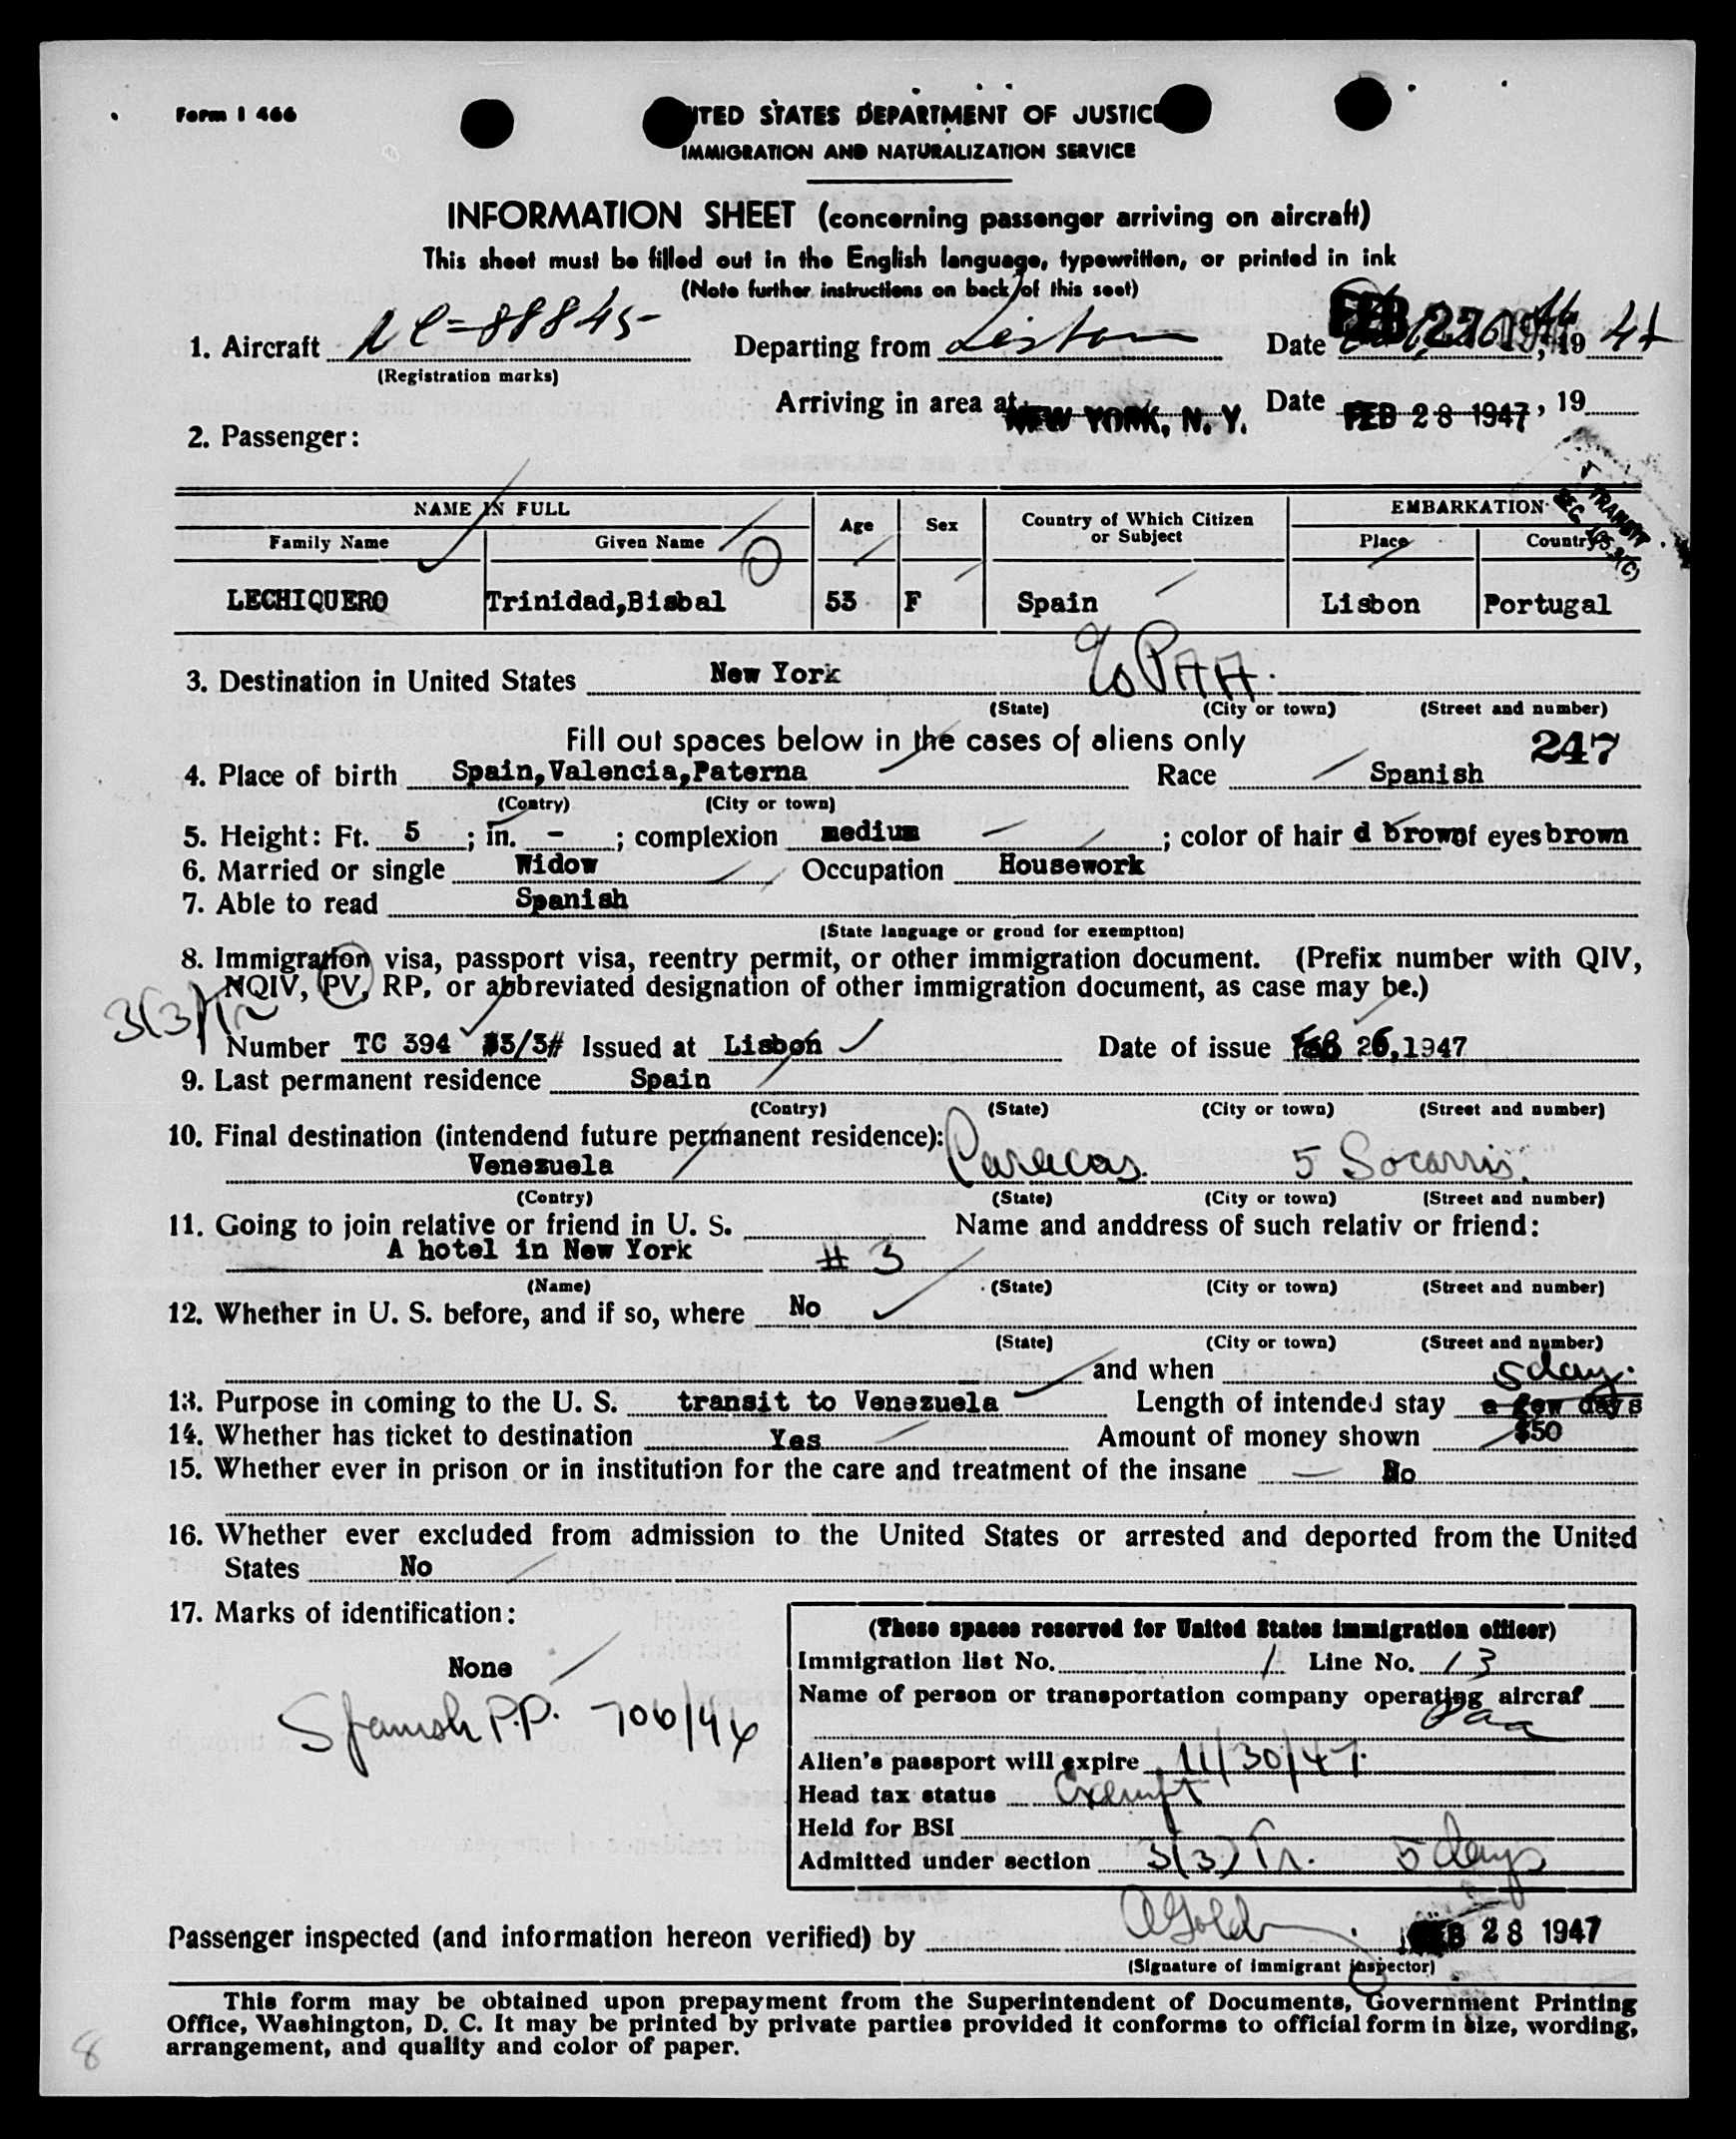 Form I 466
UNITED STATES DEPARTMENT OF JUSTICE
IMMIGRATION AND NATURALIZATION SERVICE
INFORMATION SHEET (concerning passenger arriving on aircraft)
This sheet must be filled out in the English language, typewritten, or printed in ink
(Note further instructions on back of this seet)
1. Aircraft NC=88845 Departing from Lisbon Date FEB 27 1947, 19 47
(Registration marks)
Arriving in area at NEW YORK, N. Y. Date FEB 28 1947, 19
2. Passenger:
TRANSIT
SEC. 3(C)
NAME IN FULL Age Sex Country of Which Citizen or Subject EMBARKATION
Family Name Given Name Place Country
LECHIQUERO Trinidad,Bisbal 53 F Spain Lisbon Portugal
3. Destination in United States New York c/o PAA.
(State) (City or town) (Street and number)
Fill out spaces below in the cases of aliens only 247
4. Place of birth Spain,Valencia,Paterna Race Spanish
(Contry) (City or town)
5. Height: Ft. 5 ; in. - ; complexion medium ; color of hair d brown of eyes brown
6. Married or single Widow Occupation Housework
7. Able to read Spanish
(State language or groud for exemption)
8. Immigration visa, passport visa, reentry permit, or other immigration document. (Prefix number with QIV,
NQIV, PV, RP, or abbreviated designation of other immigration document, as case may be.)
3(3)
Number TC 394 #3/3# Issued at Lisbon Date of issue Feb 26,1947
9. Last permanent residence Spain
(Contry) (State) (City or town) (Street and number)
10. Final destination (intendend future permanent residence):
Venezuela Caracas 5 Socarris.
(Contry) (State) (City or town) (Street and number)
11. Going to join relative or friend in U. S. Name and anddress of such relativ or friend:
A hotel in New York # 3
(Name) (State) (City or town) (Street and number)
12. Whether in U. S. before, and if so, where No
(State) (City or town) (Street and number)
and when
5 day.
13. Purpose in coming to the U. S. transit to Venezuela Length of intended stay a few days
14. Whether has ticket to destination Yes Amount of money shown $50
15. Whether ever in prison or in institution for the care and treatment of the insane No
16. Whether ever excluded from admission to the United States or arrested and deported from the United
States No
17. Marks of identification:
None
Spanish P.P. 706/46
(These spaces reserved for United States immigration officer)
Immigration list No. 1 Line No. 13
Name of person or transportation company operating aircraf
Paa
Alien's passport will expire 11/30/47.
Head tax status Exempt
Held for BSI
Admitted under section 3(3) Tr. 5 days
Passenger inspected (and information hereon verified) by FEB 28 1947
(Signature of immigrant inspector)
This form may be obtained upon prepayment from the Superintendent of Documents, Government Printing
Office, Washington, D. C. It may be printed by private parties provided it conforms to official form in size, wording,
arrangement, and quality and color of paper.
8